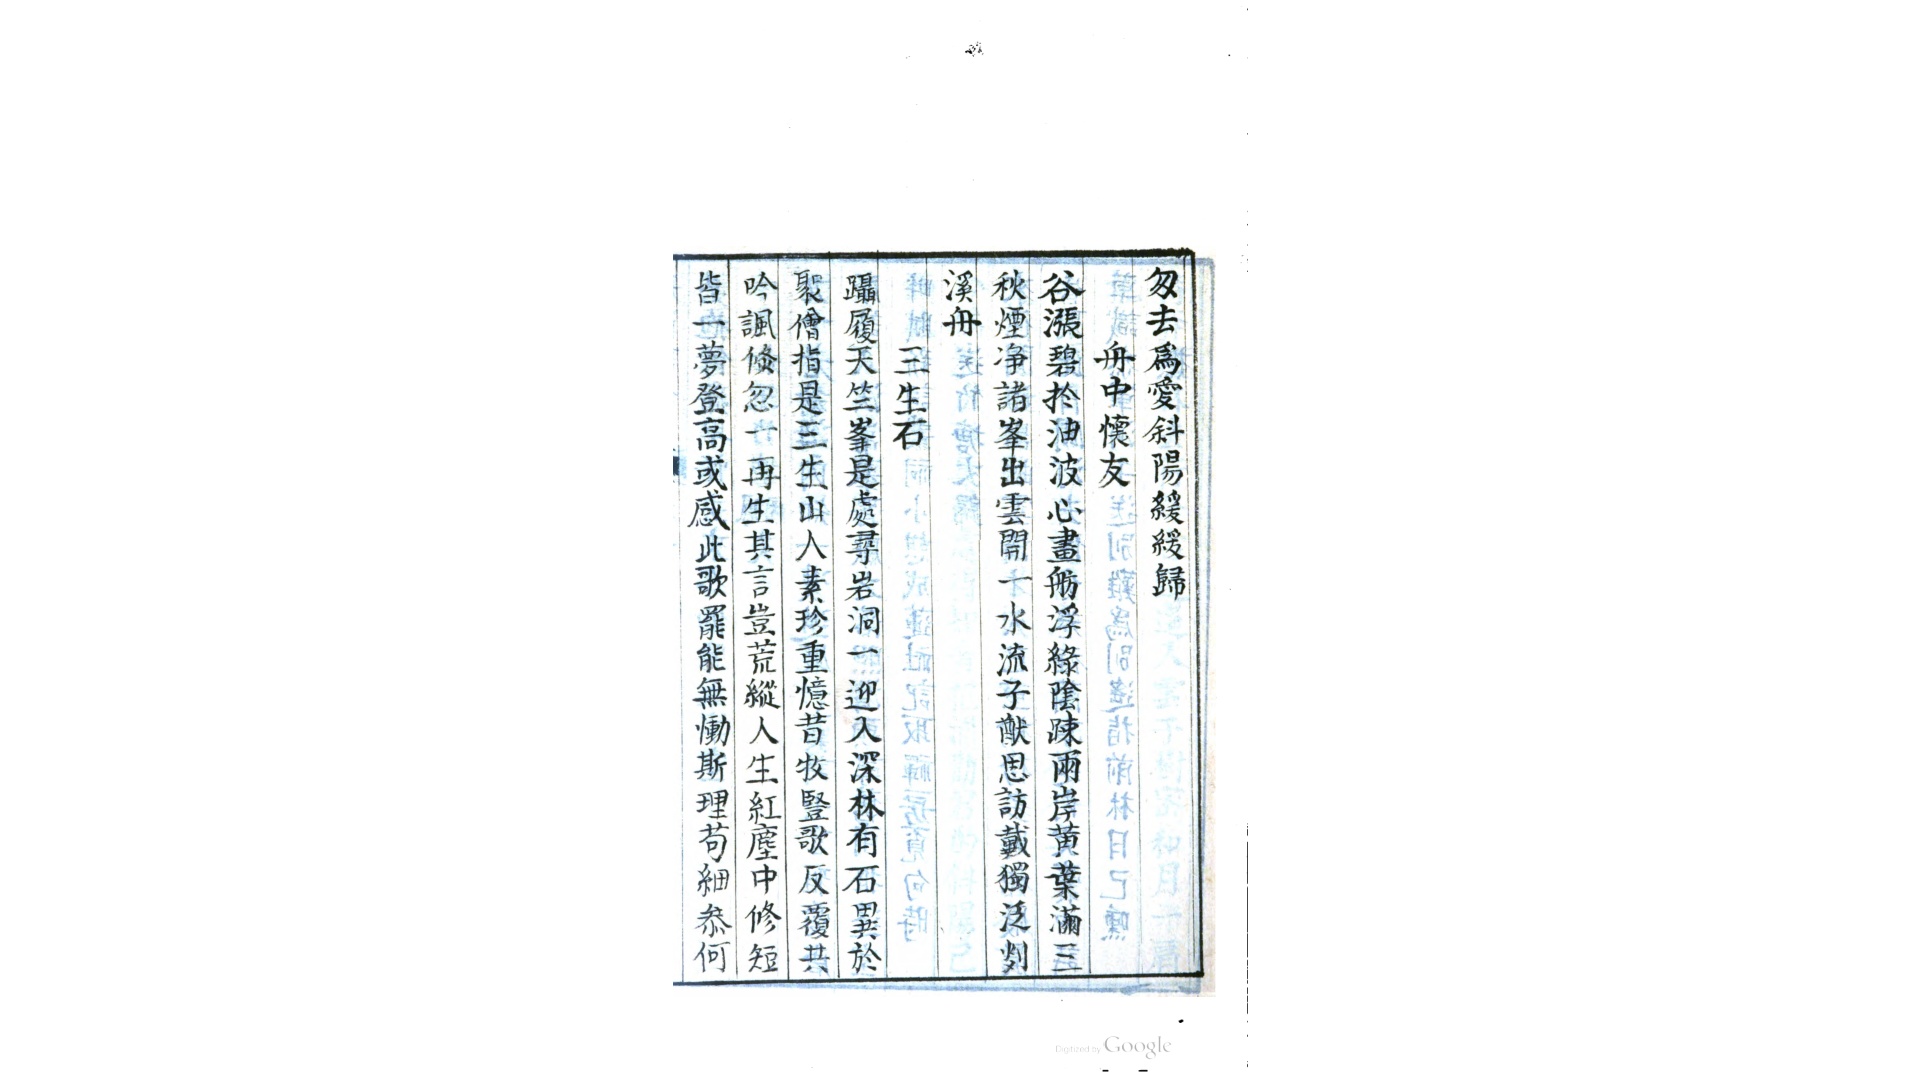 匆去爲愛斜陽緩緩歸
舟中懷友
谷漲碧於油波心畫舫浮綠陰踈兩岸黄葉滿三
秋煙净諸峯出雲開一水流子猷思訪戴獨泛剡
溪舟
三生石
躡履天竺峯是處尋岩洞一迎入深林有石異於
聚僧指是三生山人素珍重憶昔牧豎歌反覆共
吟諷倏忽一再生其言豈荒縱人生紅塵中修短
皆一夢登高或感此歌罷能無慟斯理苟細叅何
Digitized by Google